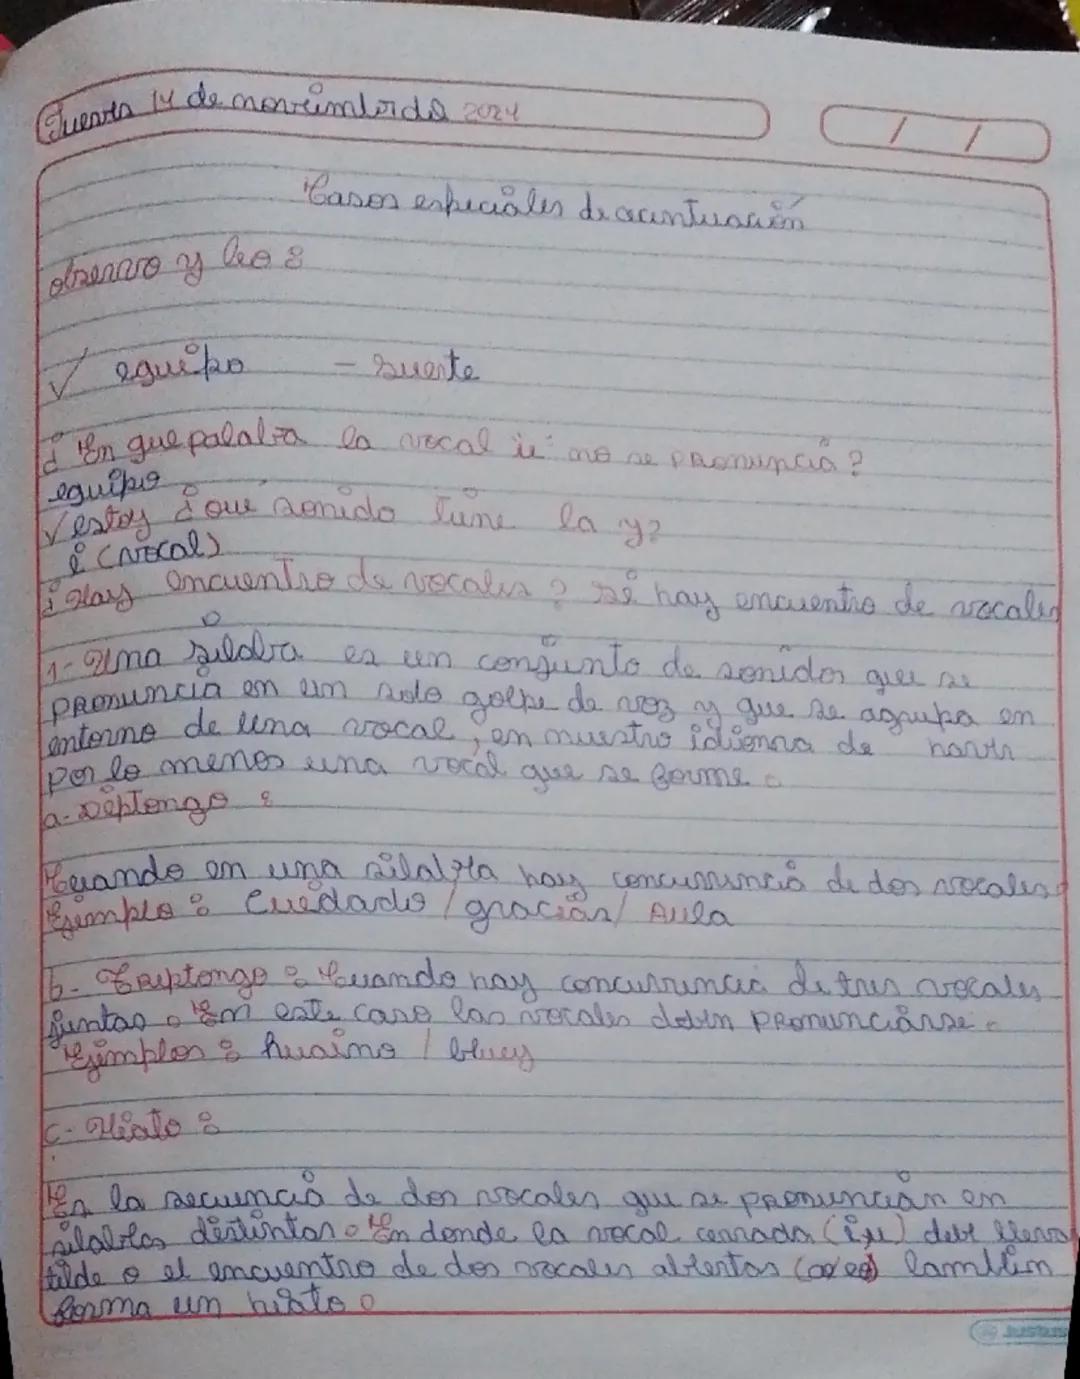 Jueves 14 de noviembre de 2024
/ /
Casos especiales de acentuación
observo y leo :
√ equipo - suerte
¿ En que palabra la vocal u no se pronuncia ?
equipo
√ estoy ¿ que sonido tiene la y?
i (vocal)
¿ Hay encuentro de vocales ? Si hay encuentro de vocales
1- Una silaba es un conjunto de sonidos que se
pronuncia en un solo golpe de voz y que se agrupa en
entorno de una vocal, en nuestro idioma de haver
por lo menos una vocal que se forme .
a- Diptongo :
Cuando en una silaba hay concurrencia de dos vocales.
Ejemplo : Cuidado / gracias / Aula
b- Triptongo : Cuando hay concurrencia de tres vocales
juntas . En este caso las vocales deben pronunciarse .
Ejemplos : huaino / bluey
c- Hiato :
Es la secuencia de dos vocales que se pronuncian en
silabas distintas . En donde la vocal cerrada (i,u) debe llevar
tilde o el encuentro de dos vocales abiertas también
forma un hiato .